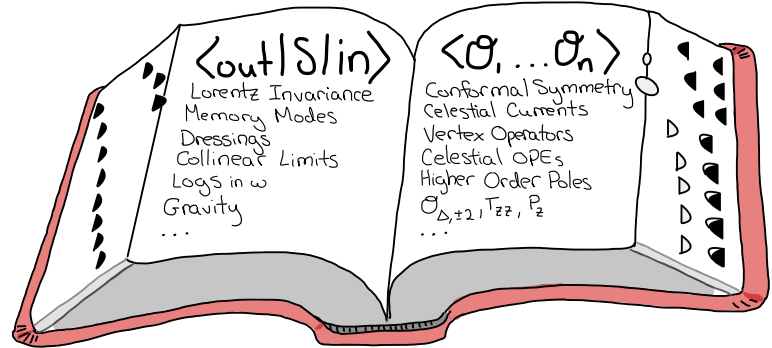 <out|S|in>
Lorentz Invariance
Memory Modes
Dressings
Collinear Limits
Logs in ω
Gravity
...
<O₁ ...Oₙ>
Conformal Symmetry
Celestial Currents
Vertex Operators
Celestial OPEs
Higher Order Poles
O_Δ,±2, T_zz, P_z
...